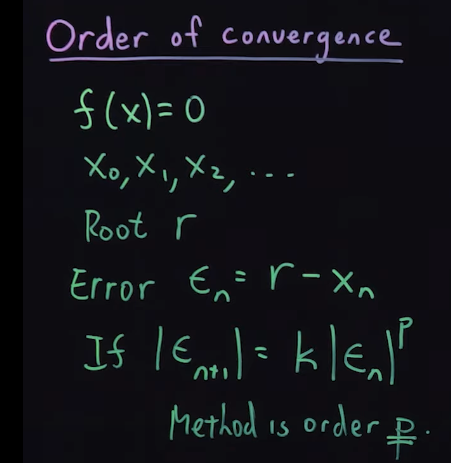 Order of convergence
f(x)=0
x₀, x₁, x₂, ...
Root r
Error ϵₙ = r - xₙ
If |ϵₙ₊₁| = k|ϵₙ|ᵖ
Method is order p.